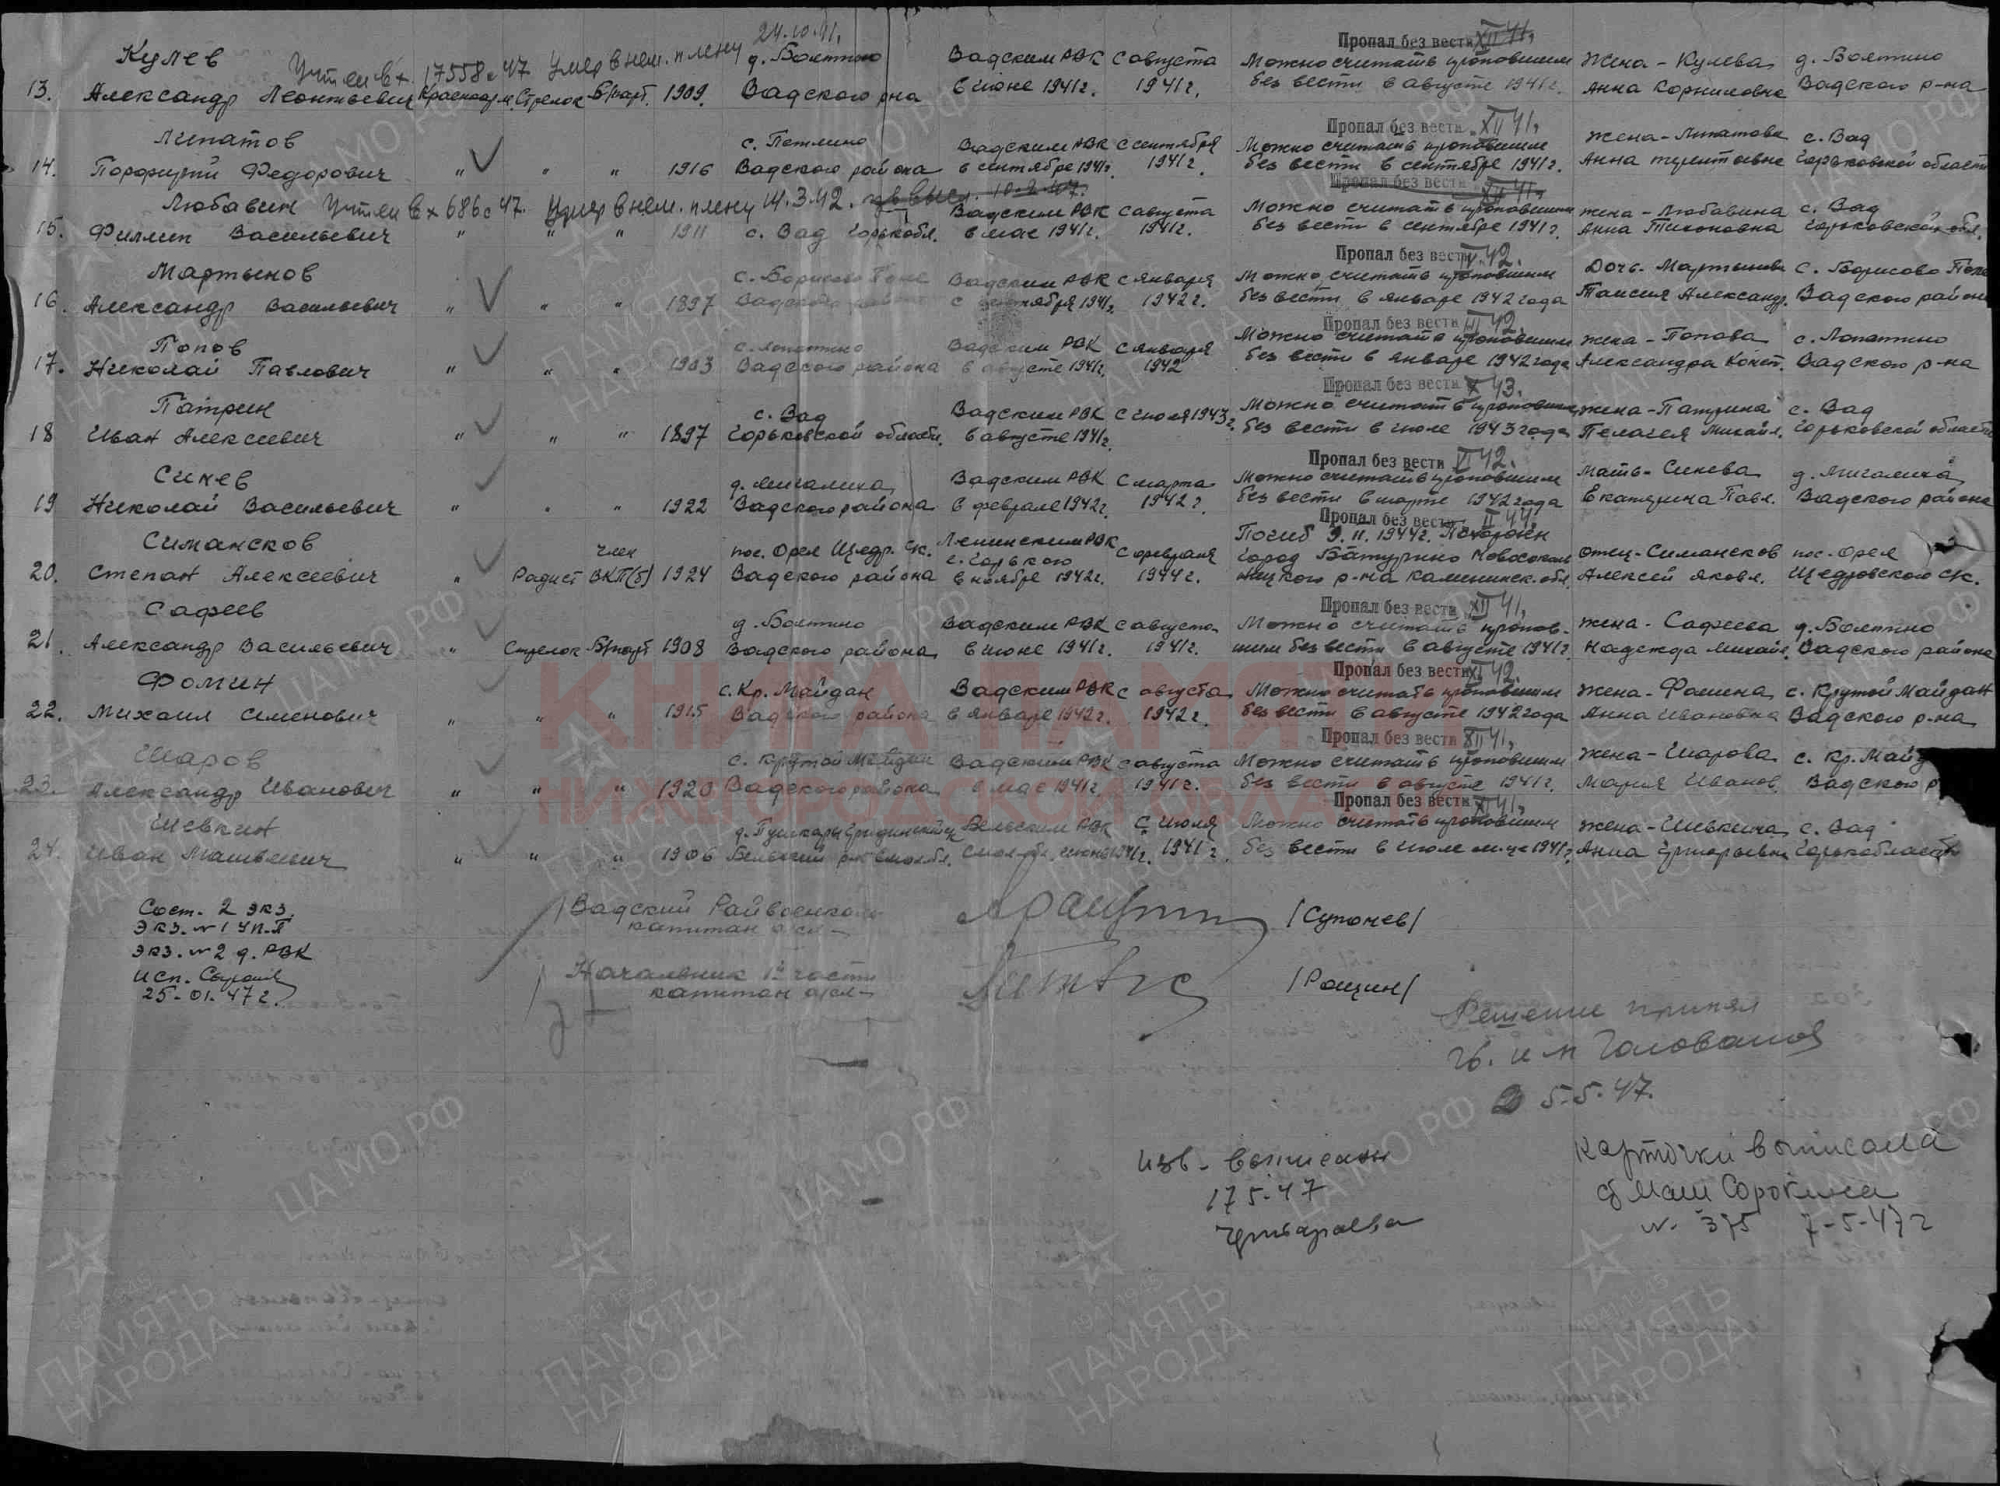 24.10.41.
Кулев Учтен вх. 17558с47 Умер в нем. плену д. Болтино Вадским РВК С августа Пропал без вести XII 41, Можно считать пропавшим Жена - Кулева д. Болтино
13. Александр Леонтьевич Красноар. Стрелок Б/парт. 1909. Вадского р-на в июне 1941г. 1941г. без вести в августе 1941г. Анна Корниловна Вадского р-на
Пропал без вести XII 41,
Липатов с. Петлино Вадским РВК С сентября Можно считать пропавшим жена - Липатова с. Вад
14. Порфирий Федорович " " " 1916 Вадского района в сентябре 1941г. 1941г. без вести в сентябре 1941г. Анна Горьковской области
Пропал без вести XII 41,
Любавин Учтен вх 686с47. Умер в нем. плену 14.3.42. Вадским РВК С августа Можно считать пропавшим жена - Любавина с. Вад
15. Филипп Васильевич " " " 1911 с. Вад Горьк.обл. в мае 1941г. 1941г. без вести в сентябре 1941г. Анна Тихоновна Горьковской обл.
Пропал без вести 42.
Мартынов с. Борисово Поле Вадским РВК С января Можно считать пропавшим Дочь - Мартынова с. Борисово Поле
16. Александр Васильевич " " " 1897 Вадского района с сентября 1941г. 1942г. без вести в январе 1942 года Таисия Александр. Вадского района
Пропал без вести III 42.
Попов с. Лопатино Вадским РВК С января Можно считать пропавшим жена - Попова с. Лопатино
17. Николай Павлович " " " 1903 Вадского района в августе 1941г. 1942 без вести в январе 1942 года Александра Конст. Вадского р-на
Пропал без вести X 43.
Патрин с. Вад Вадским РВК С июля 1943г. Можно считать пропавшим жена - Патрина с. Вад
18 Иван Алексеевич " " " 1897 Горьковской области в августе 1941г. без вести в июле 1943 года Пелагея Михайл. Горьковской области
Пропал без вести VI 42.
Синев д. Мигалиха Вадским РВК С марта Можно считать пропавшим мать - Синева д. Мигалиха
19 Николай Васильевич " " " 1922 Вадского района в феврале 1942г. 1942г. без вести в марте 1942 года Екатерина Павл. Вадского района
Пропал без вести II 44.
Симансков член пос. Орел Щедр. с/с. Ленинским РВК г. Горького С февраля Погиб 9.11.1944г. Похоронен город Батурино отец - Симансков пос. Орел
20. Степан Алексеевич " Радист ВКП(б) 1924 Вадского района в ноябре 1942г. 1944г. р-на Калининск. обл. Алексей Яковл. Щедровского с/с.
Пропал без вести XII 41,
Сафеев д. Болтино Вадским РВК С августа Можно считать пропав- жена - Сафеева д. Болтино
21. Александр Васильевич " Стрелок Б/парт 1908 Вадского района в июне 1941г. 1941г. шим без вести в августе 1941г. Надежда Михайл. Вадского района
Пропал без вести XI 42.
Фомин с. Кр. Майдан Вадским РВК С августа Можно считать пропавшим жена - Фомина с. Крутой Майдан
22. Михаил Семенович " " " 1915 Вадского района в январе 1942г. 1942г. без вести в августе 1942 года Анна Ивановна Вадского р-на
Пропал без вести XII 41,
Шаров с. Крутой Майдан Вадским РВК С августа Можно считать пропавшим жена - Шарова с. Кр. Майд
23. Александр Иванович " " " 1920 Вадского района в мае 1941г. 1941г. без вести в августе 1941г. Мария Иванов. Вадского р
Пропал без вести XI 41,
Шевкин д. Пушкари Бельским РВК С июля Можно считать пропавшим жена - Шевкина с. Вад
24. Иван Матвеевич " " " 1906 Бельский р-н 1941г. 1941г. без вести в июле м-це 1941г. Анна Григорьевна Горьк.область
Сост. 2 экз.
Экз. №1 УП-Л
Экз. №2 д. РВК
Исп.
25-01-47г.
Вадский Райвоенком
капитан а/сл - /Супонев/
Начальник 1й части
капитан а/сл - /Рощин/
Решение принял
Гв. и м Голованов
5.5.47.
Изв. выписаны
17 5-47
Карточки выписала
Маш Сорокина
№ 375 7-5-47г
КНИГА ПАМЯТИ
НИЖЕГОРОДСКОЙ ОБЛАСТИ
ЦАМО РФ
1941-1945
ПАМЯТЬ
НАРОДА